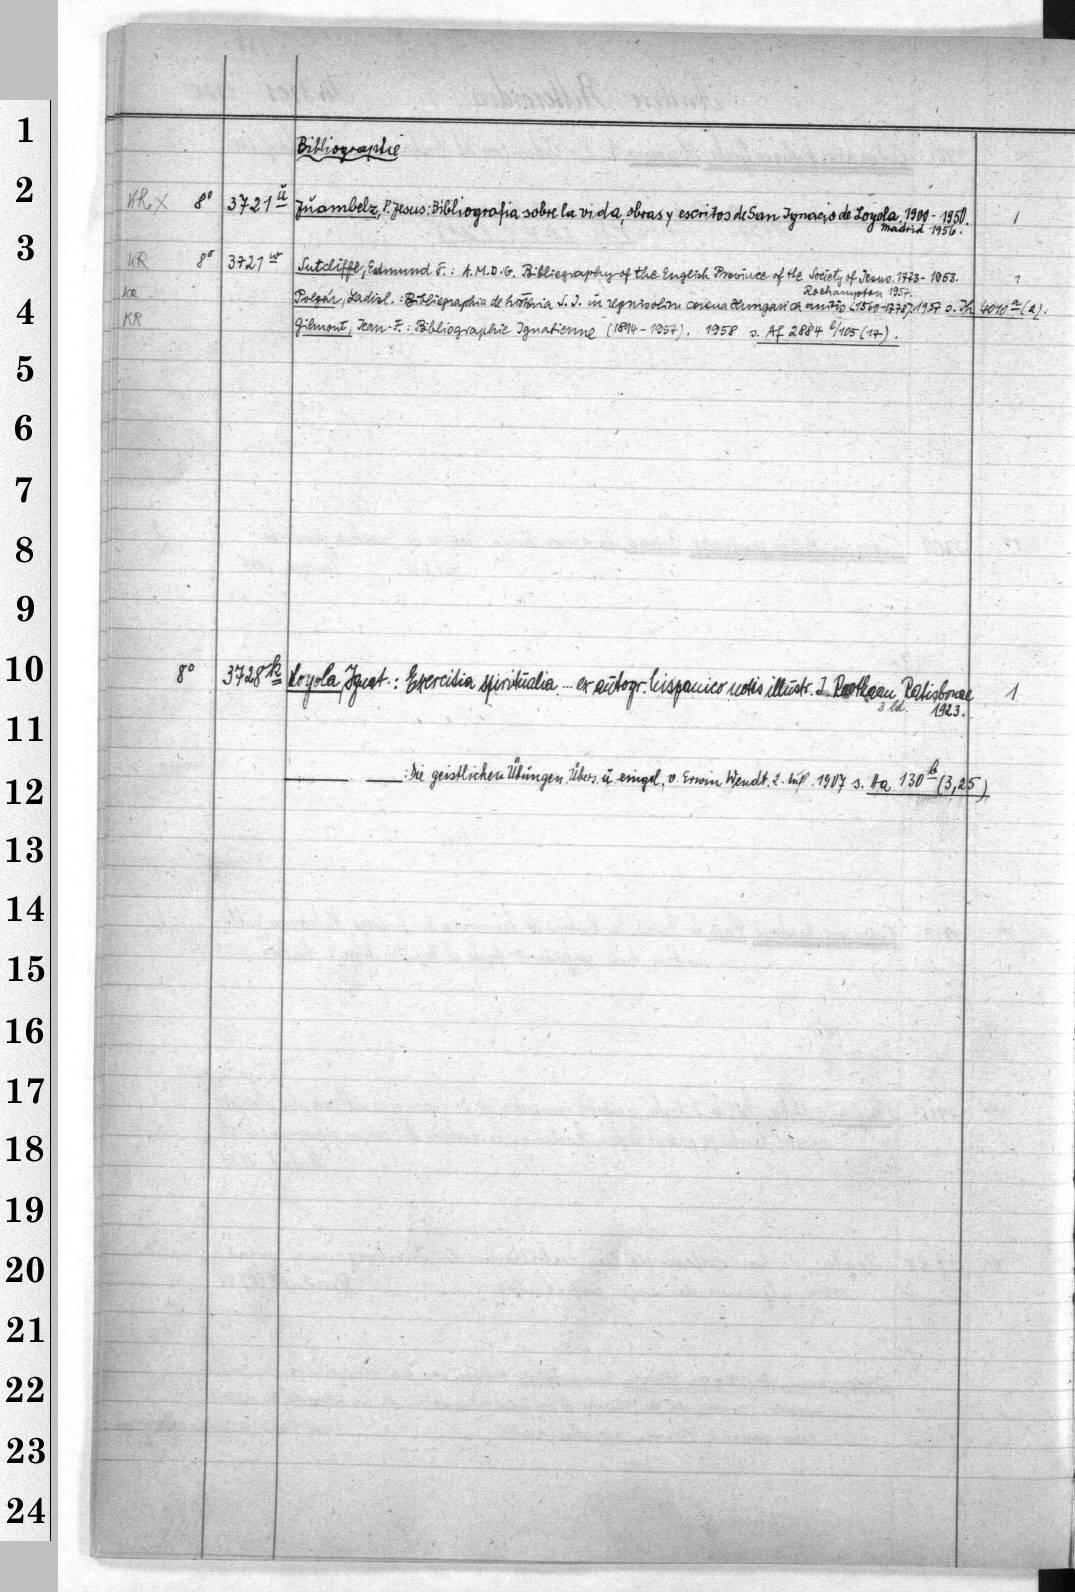 1
2
3
4
5
6
7
8
9
10
11
12
13
14
15
16
17
18
19
20
21
22
23
24
Bibliographie
KR X 8° 3721 ü Juambelz, P. Jesus: Bibliografia sobre la vida, obras y escritos de San Ignacio de Loyola. 1900-1950. 1
Madrid 1956.
KR 8° 3721 w Sutcliffe, Edmund F.: A.M.D.G. Bibliography of the English Province of the Society of Jesus. 1773-1953. 1
Roehampton 1957.
KR Polgár, Ladisl.: Bibliographia de historia S.J. in regnis olim corona Hungarica unitis (1560-1773). 1957 s. Th 4010 a (2).
KR Gilmont, Jean-F.: Bibliographie Ignatienne (1894-1957). 1958 s. Af 2884 b/105 (17).
8° 3728 k Loyola, Ignat.: Exercitia spiritualia ... ex autogr. hispanico notis illustr. J. Roothaan Ratisbonae 1
3. Ed. 1923.
— — : Die geistlichen Übungen. Übers. u. eingel. v. Erwin Wendt. 2. Aufl. 1907 s. Ha 130 b (3,25)